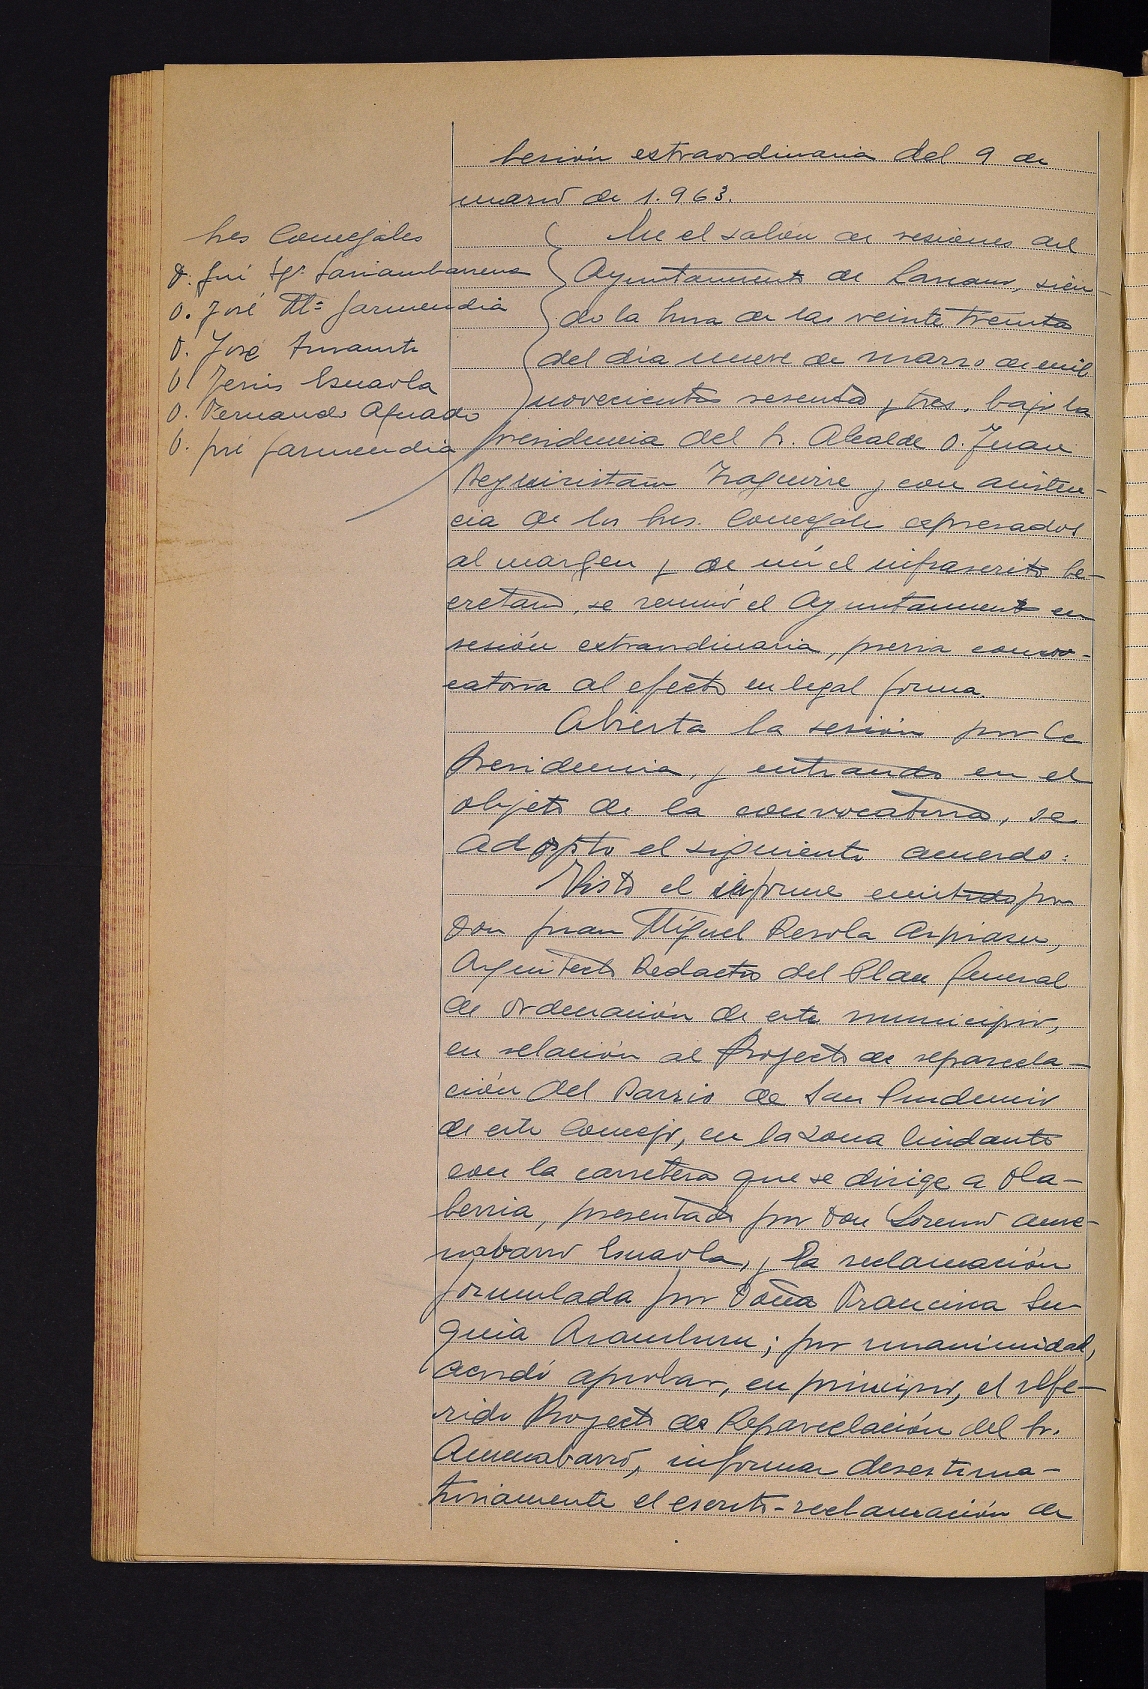 Sesión extraordinaria del 9 de
marzo de 1.963.
Sres Concejales
D. José Igº Sarriambarrena
D. José Mª Garmendia
D. José Insausti
D. Jesús Esnaola
D. Fernando Aguado
D. José Garmendia
En el salón de sesiones del
Ayuntamiento de Lazcano, sien-
do la hora de las veinte treinta
del día nueve de marzo de mil
novecientos sesenta y tres, bajo la
presidencia del Sr. Alcalde D. Juan
Reguiristain Iraguirre y con asisten-
cia de los Sres. Concejales expresados
al margen y de mí el infrascrito Se-
cretario, se reunió el Ayuntamiento en
sesión extraordinaria, previa convo-
catoria al efecto en legal forma.
Abierta la sesión por la
Presidencia, y entrando en el
objeto de la convocatoria, se
adoptó el siguiente acuerdo:
Visto el informe emitido por
Don Juan Miguel Resola Azpiazu,
Arquitecto Redactor del Plan General
de Ordenación de este municipio,
en relación al Proyecto de reparcela-
ción del Barrio de San Prudencio
de este Concejo, en la zona lindante
con la carretera que se dirige a Ola-
berria, presentado por Don Lorenzo Ame-
nabarro Esnaola, y la reclamación
formulada por Doña Francisca Su-
quia Aramburu; por unanimidad,
acordó aprobar, en principio, el refe-
rido Proyecto de Reparcelación del Sr.
Amenabarro, informar desestima-
toriamente el escrito-reclamación de